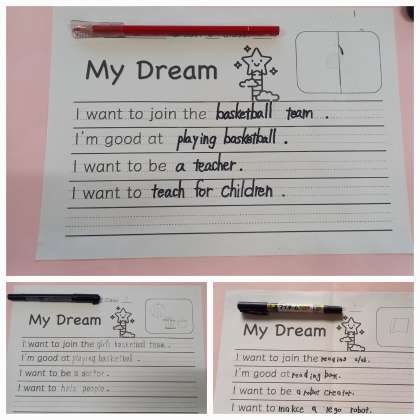 My Dream
I want to join the basketball team .
I'm good at playing basketball .
I want to be a teacher .
I want to teach for children .
My Dream
I want to join the girls basketball team .
I'm good at playing basketball .
I want to be a doctor .
I want to help people .
My Dream
I want to join the reading club.
I'm good at reading book.
I want to be a robot creater.
I want to makce a lego robot.